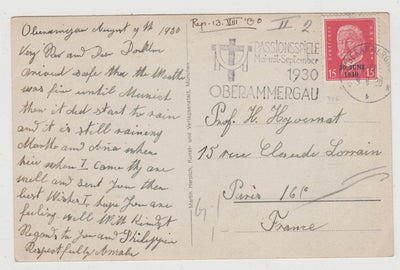 Oberamergau August 9th 1930
Very Rev and Dear Doktor
arrived safe tha the Weath
was fin until Munich
then it did start to rain
and it is still raining
Martha and Ana where
hier when I came they are
well and sent you their
best Wishes I hope you are
feeling well With Kindest
Regards to you and Philippin
Respectfully Amalia
Rep. 13. VIII '30
II 2
PASSIONSPIELE
Mai mit September
1930
OBERAMMERGAU
DEUTSCHES REICH
30. JUNI
1930
15 15
Martin Herpich, Kunst- und Verlagsanstalt, München
Prof. H. Hyvernat
15 rue Claude Lorrain
Paris 16e
France